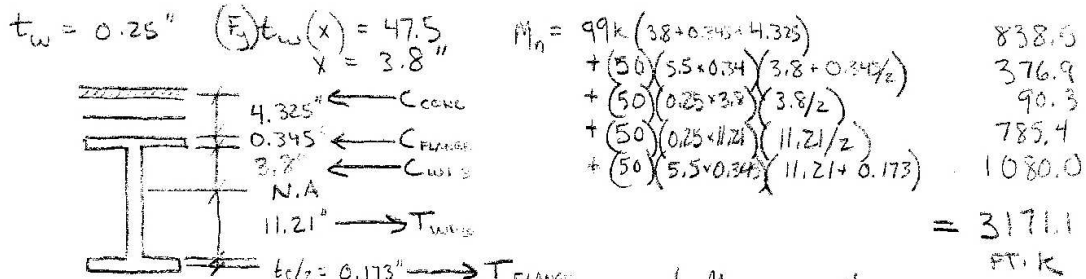 t_w = 0.25" (F_y)t_w(x) = 47.5
x = 3.8"
4.325" ← C_CONC
0.345" ← C_FLANGE
3.8" ← C_WEB
N.A
11.21" → T_WEB
t_f/2 = 0.173" → T_FLANGE
M_n = 99k(3.8+0.345+4.325) 838.5
+(50)(5.5×0.34)(3.8+0.345/2) 376.9
+(50)(0.25×3.8)(3.8/2) 90.3
+(50)(0.25×11.21)(11.21/2) 785.4
+(50)(5.5×0.345)(11.21+0.173) 1080.0
= 3171.1
FT·K